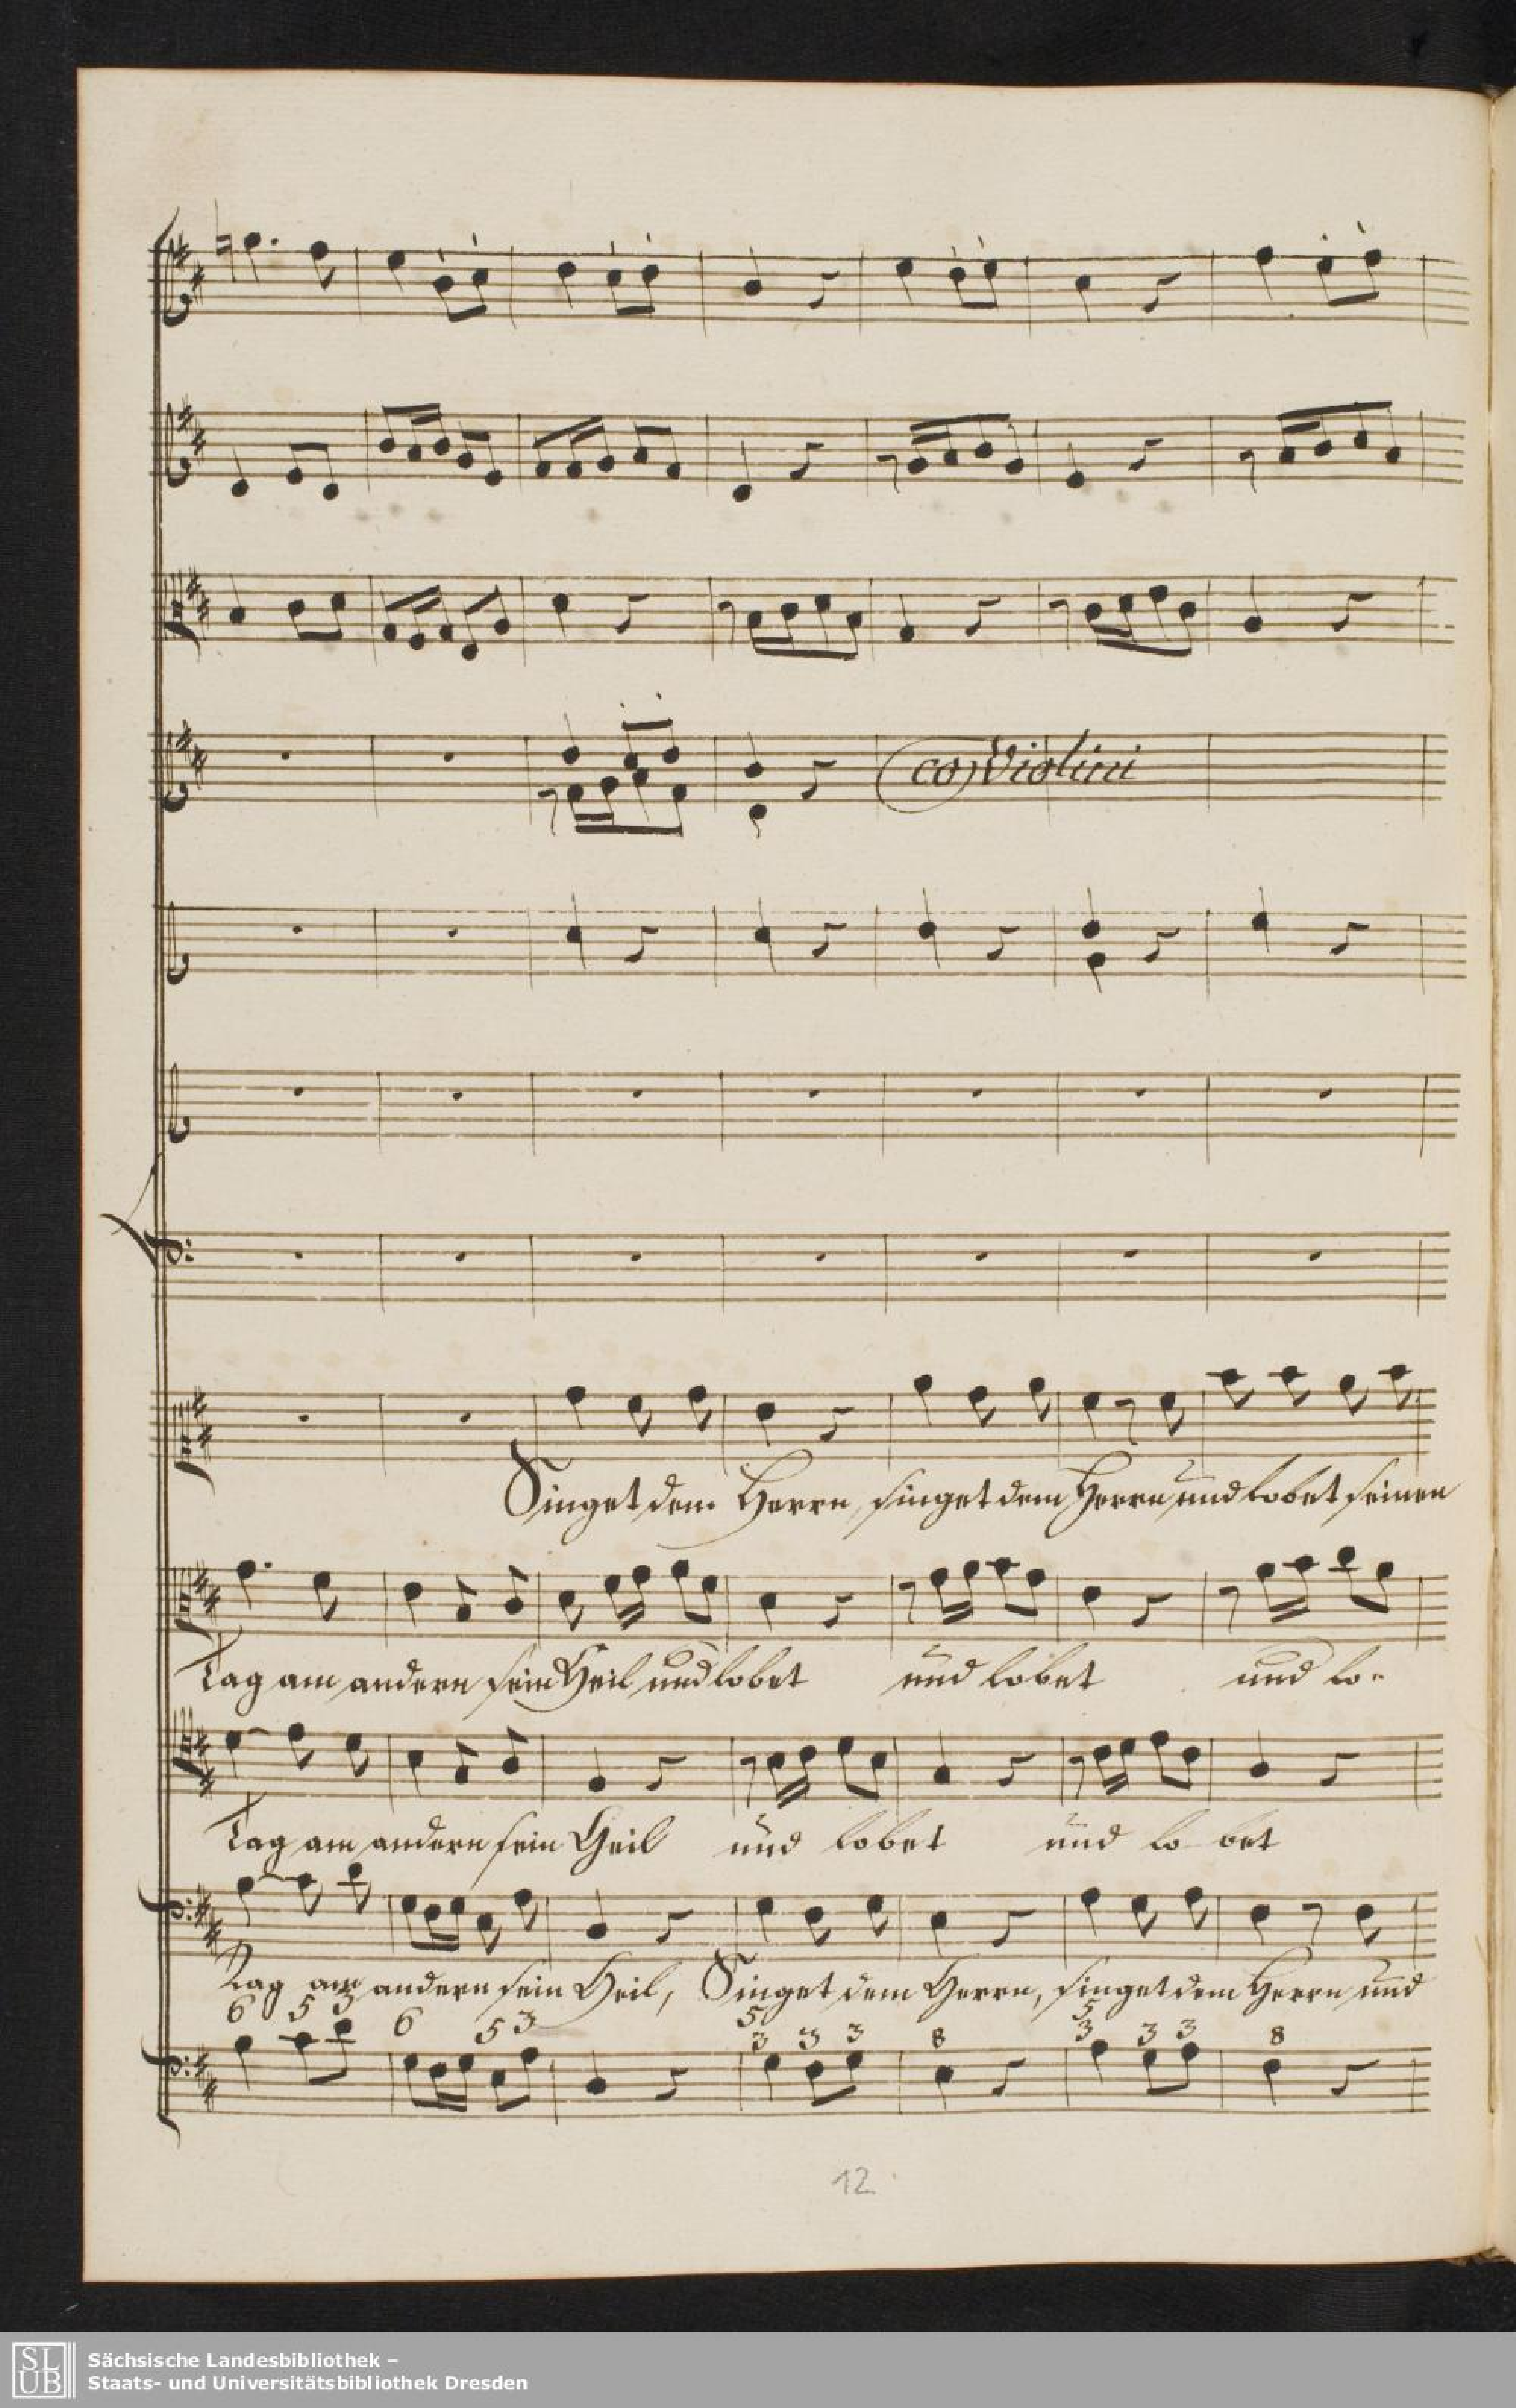 co Violini
Singet dem Herrn, singet dem Herrn und lobet seinen
Tag am andern sein Heil und lobet und lobet und lo-
Tag am andern sein Heil und lobet und lo bet
Tag am andern sein Heil, Singet dem Herrn, singet dem Herrn und
6 5 3 6 5 3 5 3 3 3 8 5 3 3 3 8
12
SLUB
Sächsische Landesbibliothek –
Staats- und Universitätsbibliothek Dresden